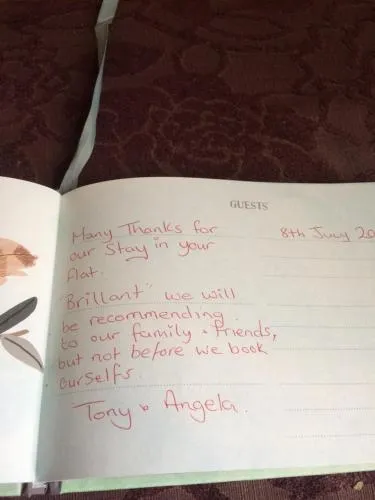 GUESTS
Many Thanks for
our Stay in your
flat.
"Brillant" we will
be recommending
to our family & friends,
but not before we book
ourselfs.
Tony & Angela.
8th July 20